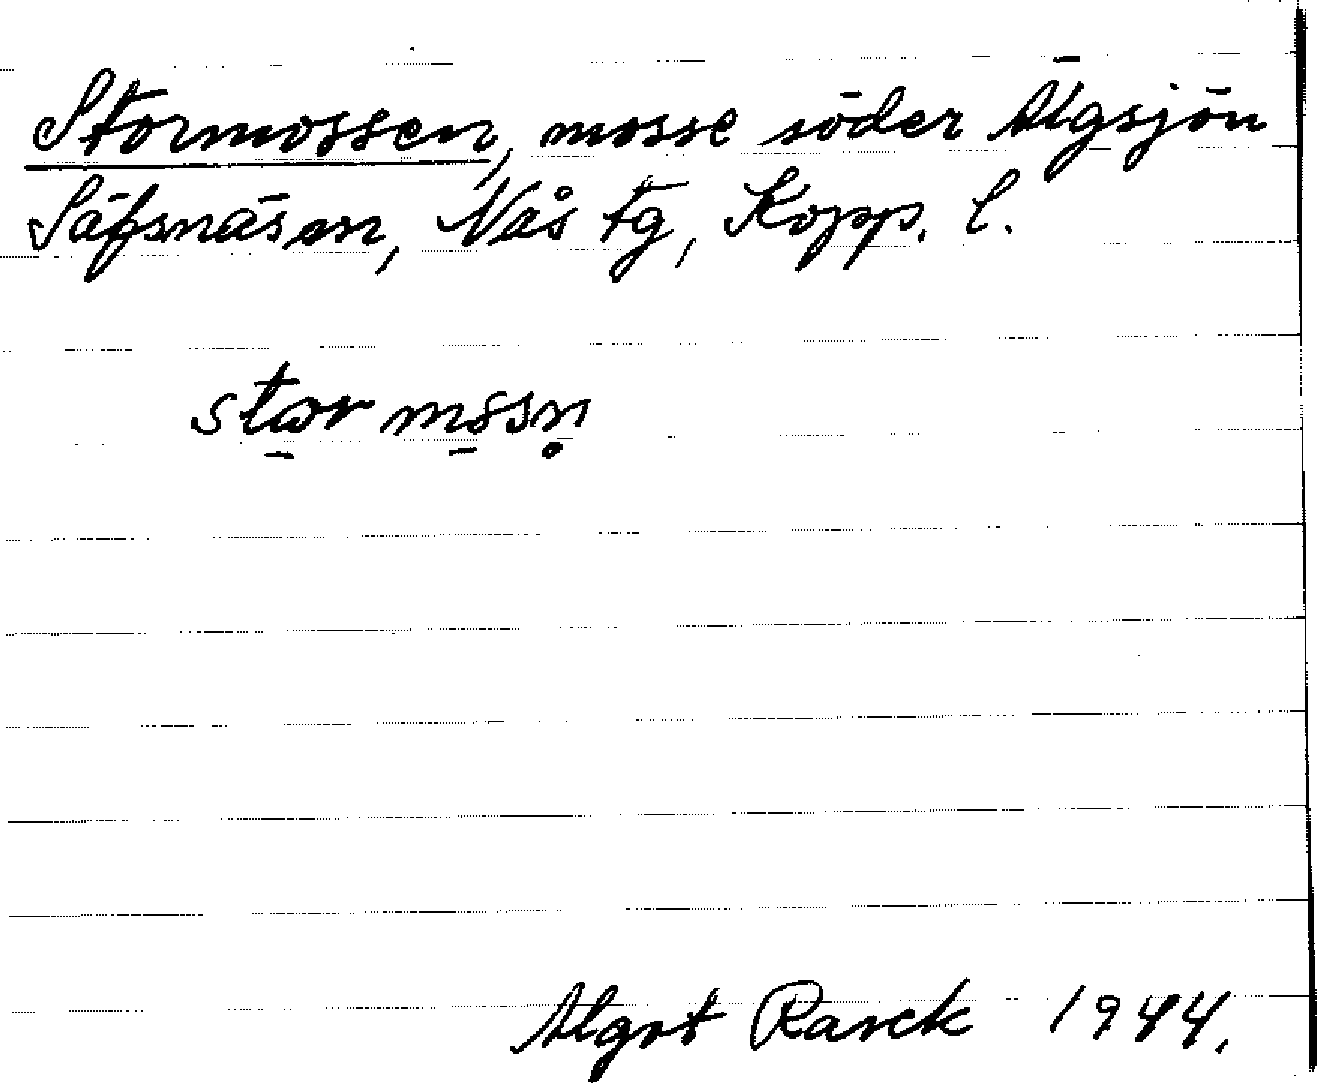 Stormossen, mosse söder Älgsjön
Säfsnäsen, Nås tg, Kopp. l.
stor mossn
Algot Rasck 1944.